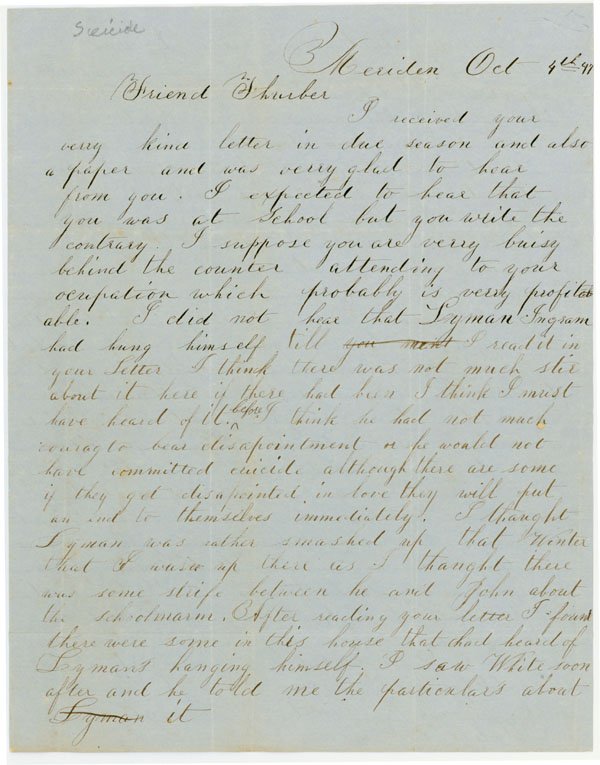 Suicide
Meriden Oct 4th 47
Friend Thurber
I received your
verry kind letter in due season and also
a paper and was verry glad to hear
from you. I expected to hear that
you was at School but you write the
contrary. I suppose you are verry buisy
behind the counter attending to your
ocupation which probably is verry profitab
able. I did not hear that Lyman Ingram
had hung himself till you went I read it in
your Letter I think there was not much stir
about it here if there had been I think I must
have heard of it before. I think he had not much
courag to bear disapointment or he would not
have committed suicide although there are some
if they got disapointed in love they will put
an end to themselves immediately. I thought
Lyman was rather smashed up that Winter
that I was up there as I thaught there
was some strife between he and John about
the schoolmarm. After reading your letter I found
there were some in this house that had heard of
Lymans hanging himself. I saw White soon
after and he told me the particulars about
Lyman it